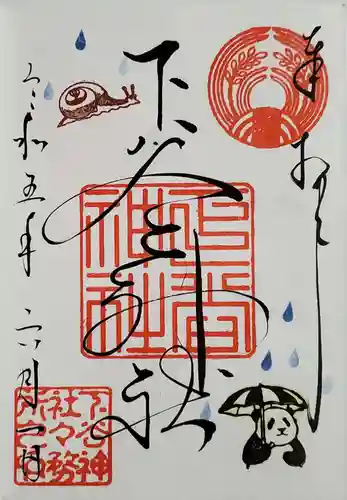 奉拝
下谷神社
令和五年六月一日
下谷神
社々務
所之印